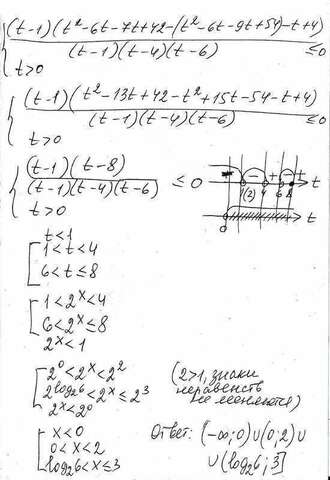 (t-1)(t²-6t-7t+42-(t²-6t-9t+54)-t+4)
(t-1)(t-4)(t-6) ≤0
t>0
(t-1)(t²-13t+42-t²+15t-54-t+4)
(t-1)(t-4)(t-6) ≤0
t>0
(t-1)(t-8)
(t-1)(t-4)(t-6) ≤ 0
t>0
- - + -
1 (2) 4 6 8 t
0 t
t<1
1<t<4
6<t≤8
1<2ˣ<4
6<2ˣ≤8
2ˣ<1
2⁰<2ˣ<2²
2^log₂6<2ˣ≤2³
2ˣ<2⁰
(2>1, знаки
неравенств
не меняются)
x<0
0<x<2
log₂6<x≤3
Ответ: (-∞;0)∪(0;2)∪
∪(log₂6;3]